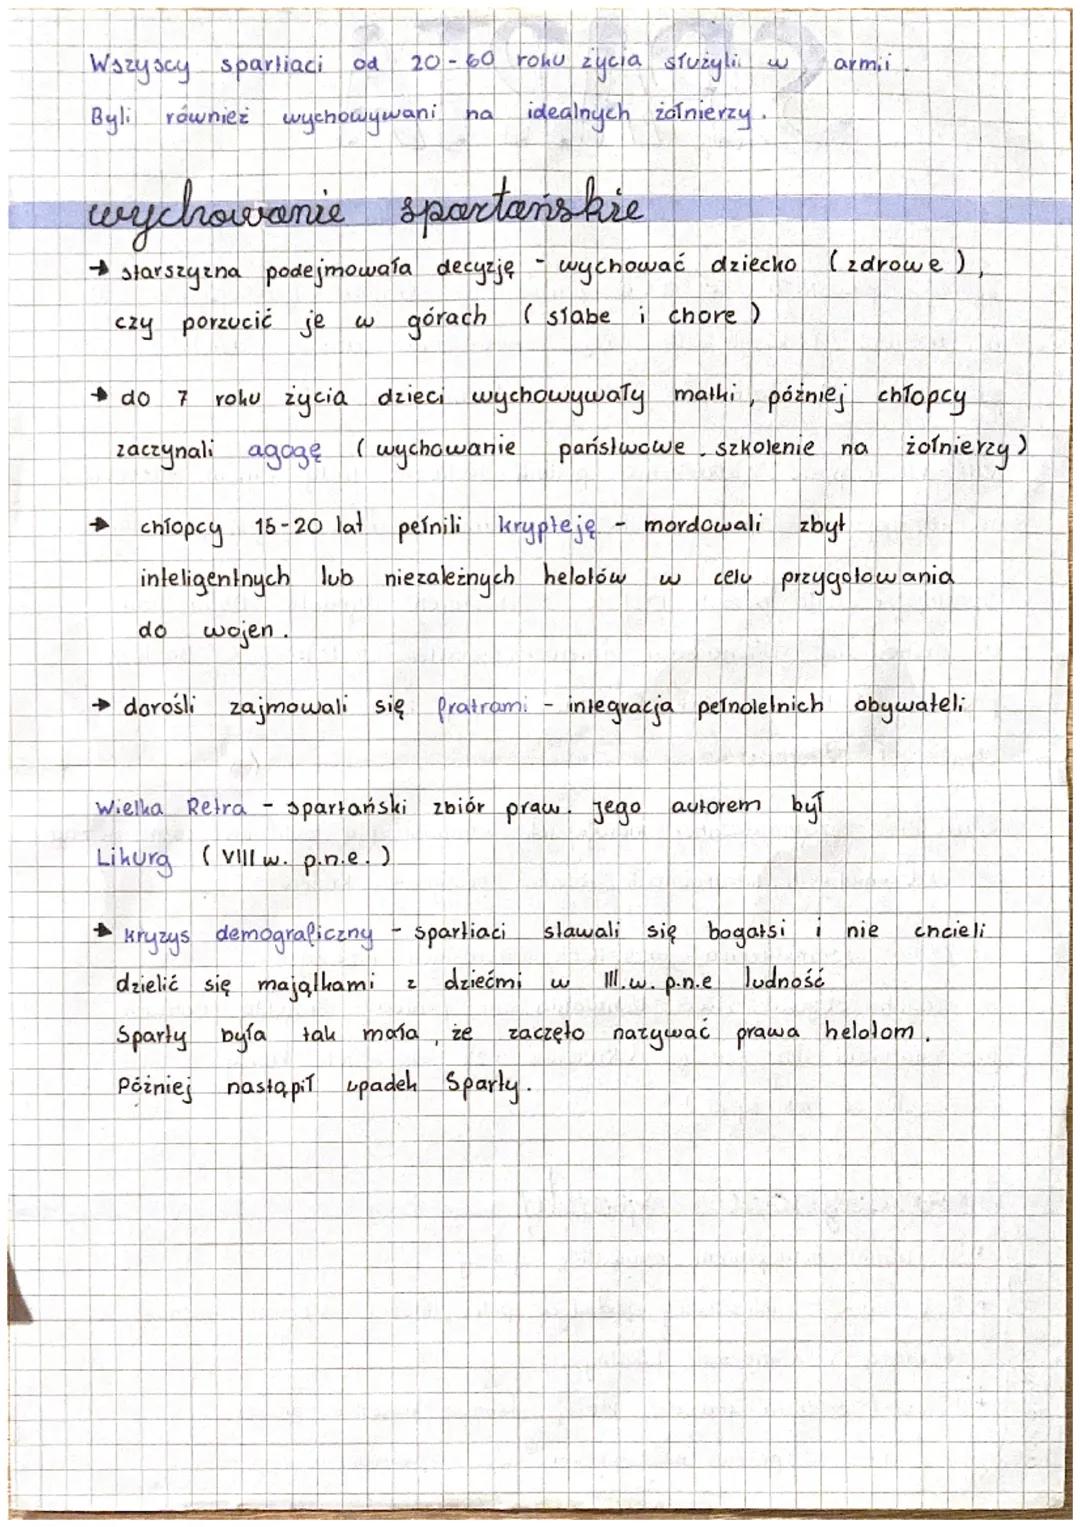 Wszyscy spartiaci od 20-60 roku życia służyli w armii.
Byli również wychowywani na idealnych żołnierzy.
wychowanie spartańskie
→ starszyzna podejmowała decyzję - wychować dziecko (zdrowe),
czy porzucić je w górach (słabe i chore)
→ do 7 roku życia dzieci wychowywały matki, później chłopcy
zaczynali agogę (wychowanie państwowe. szkolenie na żołnierzy)
→ chłopcy 15-20 lat pełnili krypteję - mordowali zbyt
inteligentnych lub niezależnych helotów w celu przygotowania
do wojen.
→ dorośli zajmowali się fratrami - integracja pełnoletnich obywateli
Wielka Retra - spartański zbiór praw. Jego autorem był
Likurg (VIII w. p.n.e.)
→ kryzys demograficzny - spartiaci stawali się bogatsi i nie chcieli
dzielić się majątkami z dziećmi w III.w. p.n.e ludność
Sparty była tak mała, że zaczęto nazywać prawa helotom.
Później nastąpił upadek Sparty.